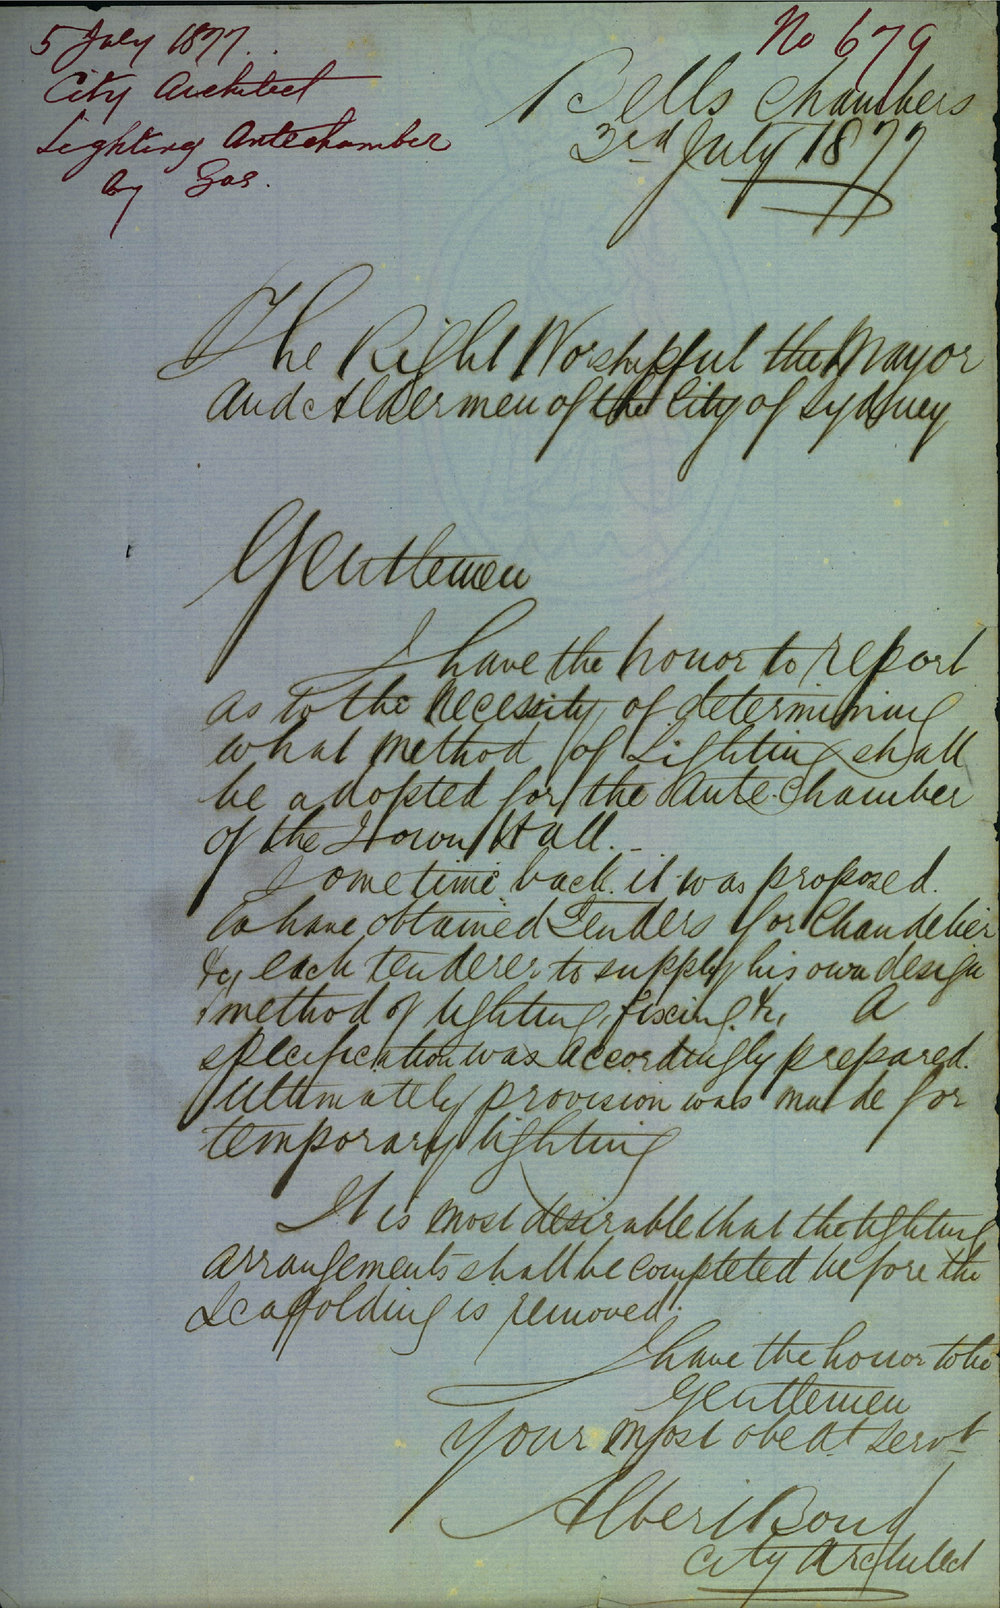 5 July 1877.
City Architect
Lighting Antechamber
by Gas.
No 679
Bells Chambers
3rd July 1877
The Right Worshipful the Mayor
And Aldermen of the City of Sydney
Gentlemen
I have the honor to report
as to the necessity of determining
what method of Lighting shall
be adopted for the Ante-Chamber
of the Town Hall. -
Some time back it was proposed.
to have obtained Tenders for Chandelier
&c, each tenderer to supply his own design
& method of lighting, fixing &c, A
specification was accordingly prepared.
Ultimately provision was made for
temporary lighting
It is most desirable that the lighting
arrangements shall be completed before the
Scaffolding is removed.
I have the honor to be
Gentlemen
Your most obedt servt
Albert Bond
City Architect